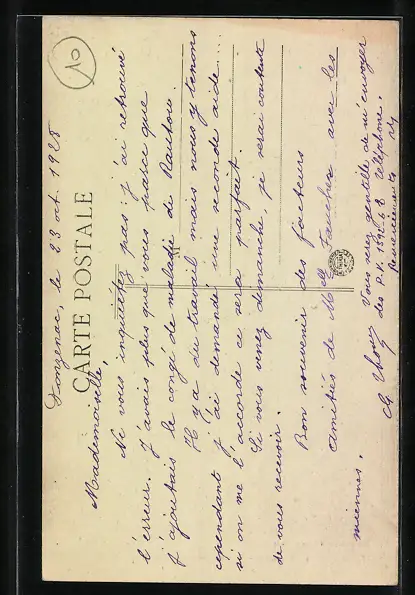 10
Donzenac, le 23 oct. 1928
CARTE POSTALE
Mademoiselle,
Ne vous inquiétez pas : j'ai retrouvé
l'erreur. J'avais plus que vous parce que
j'ajoutais le congé de maladie de
Il y a du travail mais nous y tenons
cependant j'ai demandé une seconde aide...
si on me l'accorde ce sera parfait.
Si vous venez dimanche, je serai contente
de vous recevoir.
Bon souvenir des facteurs
amitiés de Mlle Faucher avec les
miennes.
Vous serez gentille de m'envoyer
des P.V. 1392 & 8 Téléphone.
Remerciements